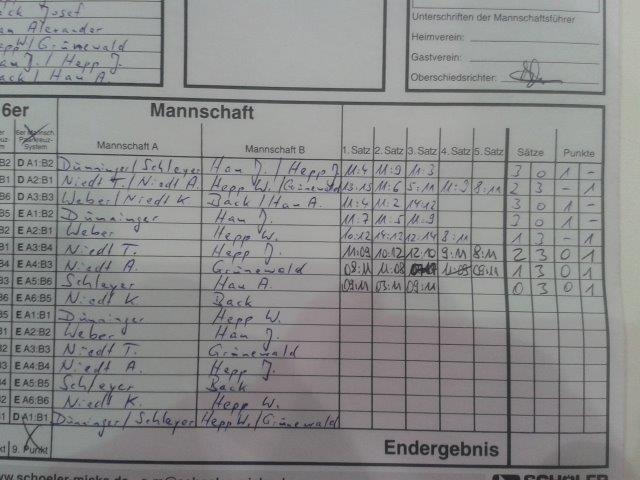 ck Josef
Alexander
Hepp W/Grünewald
Hau J. / Hepp J.
Back / Hau A.
Unterschriften der Mannschaftsführer
Heimverein:
Gastverein:
Oberschiedsrichter:
6er Mannschaft
6er Mannsch. Paarkreuz-System Mannschaft A Mannschaft B 1. Satz 2. Satz 3. Satz 4. Satz 5. Satz Sätze Punkte
B2 D A1:B2 Dünninger/Schleyer Hau J. / Hepp J 11:4 11:9 11:3 3 0 1 -
B1 D A2:B1 Niedt T./Niedt A. Hepp W./Grünewald 13:15 11:6 5:11 11:9 8:11 2 3 - 1
B6 D A3:B3 Weber/Niedt K Back/Hau A. 11:4 11:2 14:12 3 0 1 -
B5 E A1:B2 Dünninger Hau J. 11:7 11:5 11:9 3 0 1 -
B2 E A2:B1 Weber Hepp W. 10:12 14:12 12:14 8:11 1 3 - 1
B1 E A3:B4 Niedt T. Hepp J. 11:09 10:12 12:10 9:11 8:11 2 3 0 1
B4 E A4:B3 Niedt A. Grünewald 08:11 11:08 09:11 1 3 0 1
E A5:B6 Schleyer Hau A. 09:11 03:11 09:11 0 3 0 1
B6 E A6:B5 Niedt K Back
B5 E A1:B1 Dünninger Hepp W.
B2 E A2:B2 Weber Hau J.
B1 E A3:B3 Niedt T. Grünewald
B3 E A4:B4 Niedt A. Hepp J.
B4 E A5:B5 Schleyer Back
B2 E A6:B6 Niedt K. Hepp W.
B1 D A1:B1 Dünninger/Schleyer Hepp W./Grünewald
9. Punkt Endergebnis
SCHÖLER